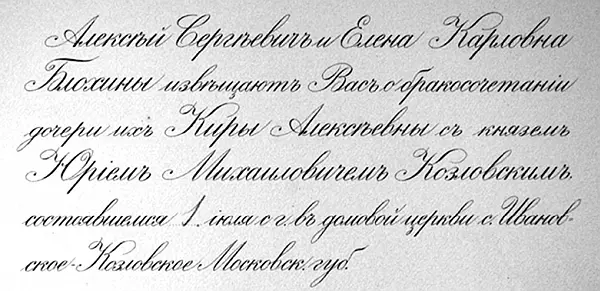 Алексѣй Сергѣевичъ и Елена Карловна
Блохины извѣщаютъ Васъ о бракосочетаніи
дочери ихъ Киры Алексѣевны съ княземъ
Юріемъ Михаиловичемъ Козловскимъ,
состоявшемся 1. іюля с. г. въ домовой церкви с. Иванов-
ское-Козловское Московск. губ.